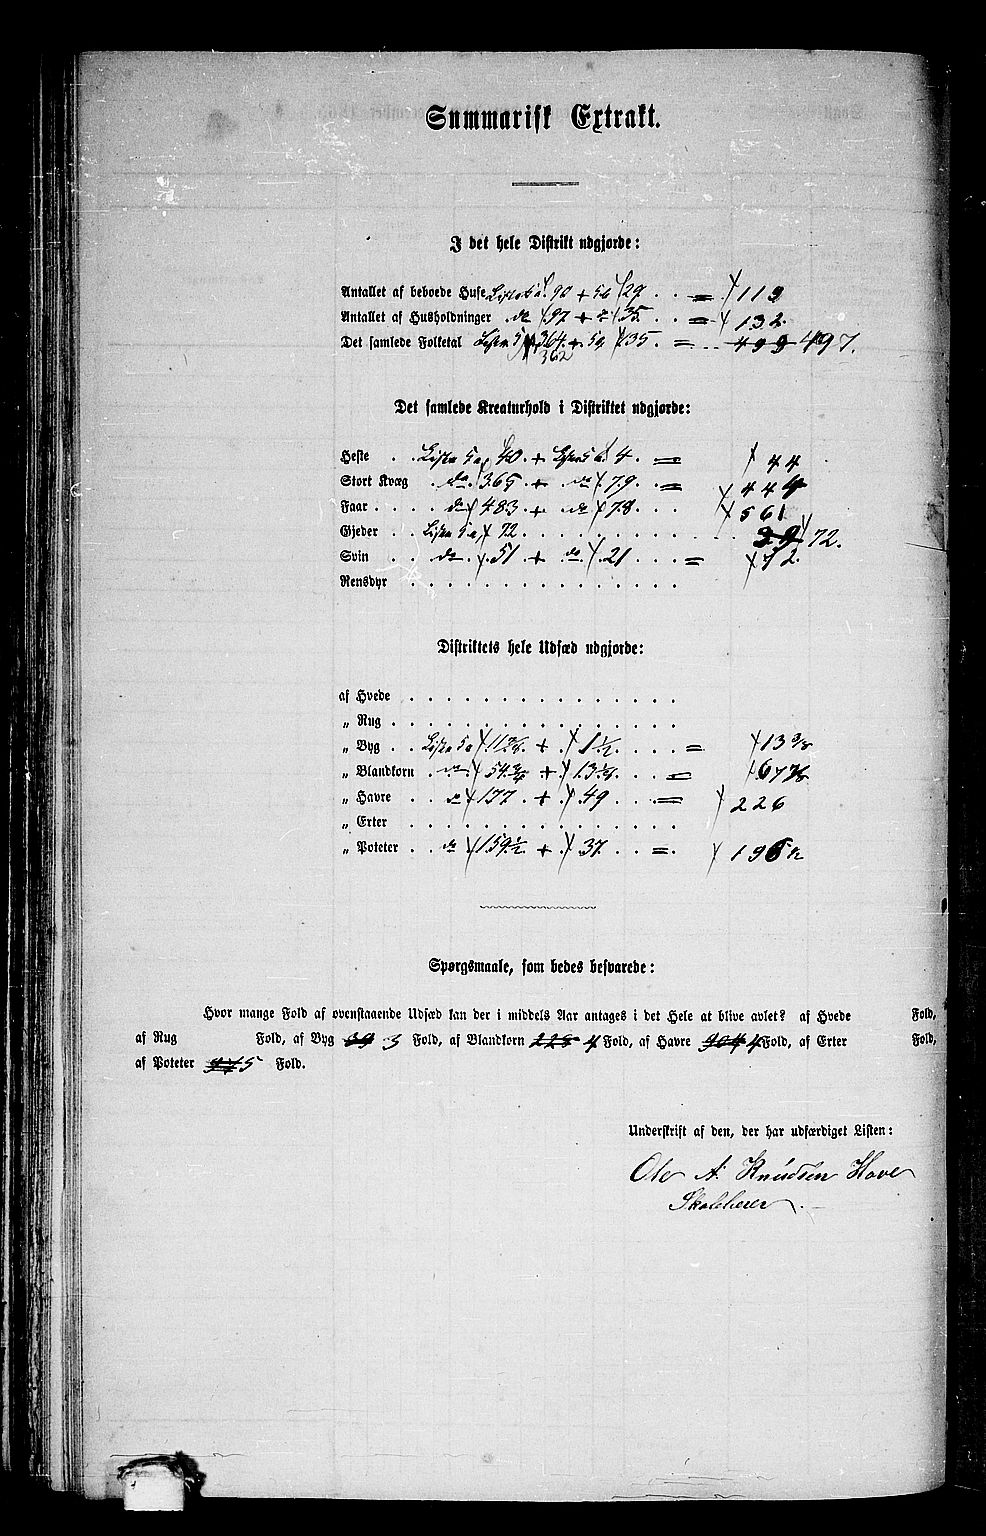 Summarisk Extrakt.
I det hele Distrikt udgjorde:
Antallet af beboede Huse Liste 5a. 90 + 5b 29 . . = 119
Antallet af Husholdninger . do 97 + do 35 . . = 132.
Det samlede Folketal Liste 5a 364 + 5b 135 . = . . 499 497.
362
Det samlede Kreaturhold i Distriktet udgjorde:
Heste . . Liste 5a 40 . + Liste 5b 4 . = 44
Stort Kvæg . do . 365 . + do 79 . = 444
Faar . . . . do 483 . + do 78 . . . 561
Gjeder . . Liste 5a 72 . . . . . . . . . . . . 39 72.
Svin . . do . 51 . + do . 21 . . . = 72.
Rensdyr . . . . . . . . . . . . .
Distriktets hele Udsæd udgjorde:
af Hvede . . . . . . . . . . . . .
„ Rug . . . . . . . . . . . . . .
„ Byg . . Liste 5a 11 7/8 . + . 1 1/2 . . . = 13 3/8
„ Blandkorn . do . 54 3/4 + 13 1/8 . . = 67 7/8
„ Havre . . do 177 . + 49 . . . = 226
„ Erter . . . . . . . . . . . . .
„ Poteter . . do 159 1/2 + 37 . . = . 196 1/2
Spørgsmaale, som bedes besvarede:
Hvor mange Fold af ovenstaaende Udsæd kan der i middels Aar antages i det Hele at blive avlet? af Hvede Fold,
af Rug Fold, af Byg 3 Fold, af Blandkorn 4 Fold, af Havre 904 4 Fold, af Erter Fold,
af Poteter 5 Fold.
Underskrift af den, der har udfærdiget Listen:
Ole A. Knudsen Hove
Skolelærer .